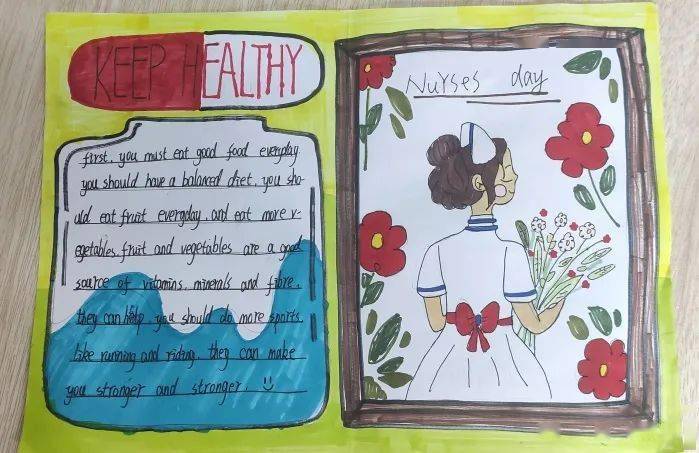 KEEP HEALTHY
first, you must eat good food everyday.
you should have a balanced diet. you sho-
uld eat fruit everyday. and eat more v-
egetables. fruit and vegetables are a good
source of vitamins, minerals and fibre.
they can help. you should do more sports.
like running and riding. they can make
you stronger and stronger.
Nurses day